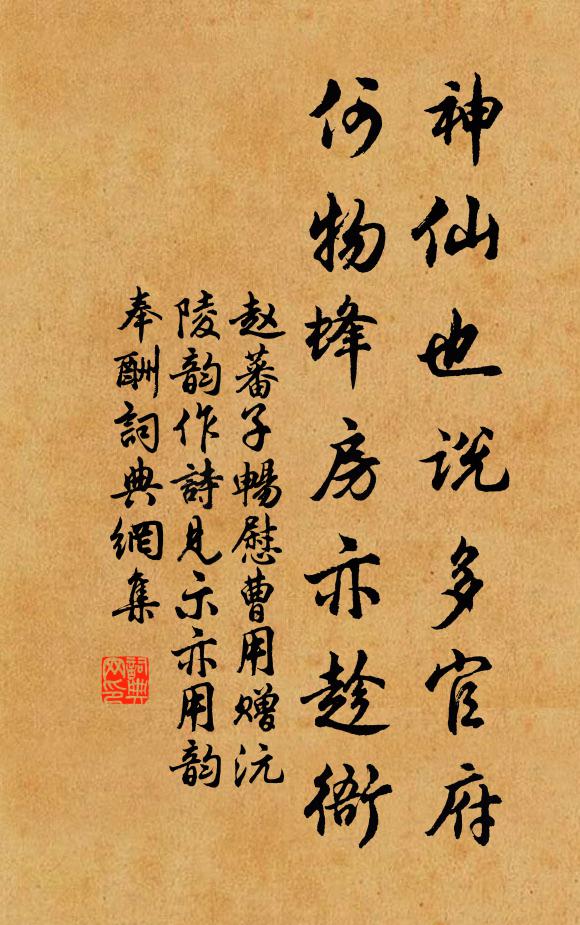 神仙也说多官府
何物蜂房亦趁衙
赵蕃子畅慰曹用赠沅
陵韵作詩見示亦用韵
奉酬詞典網集
詞典網印